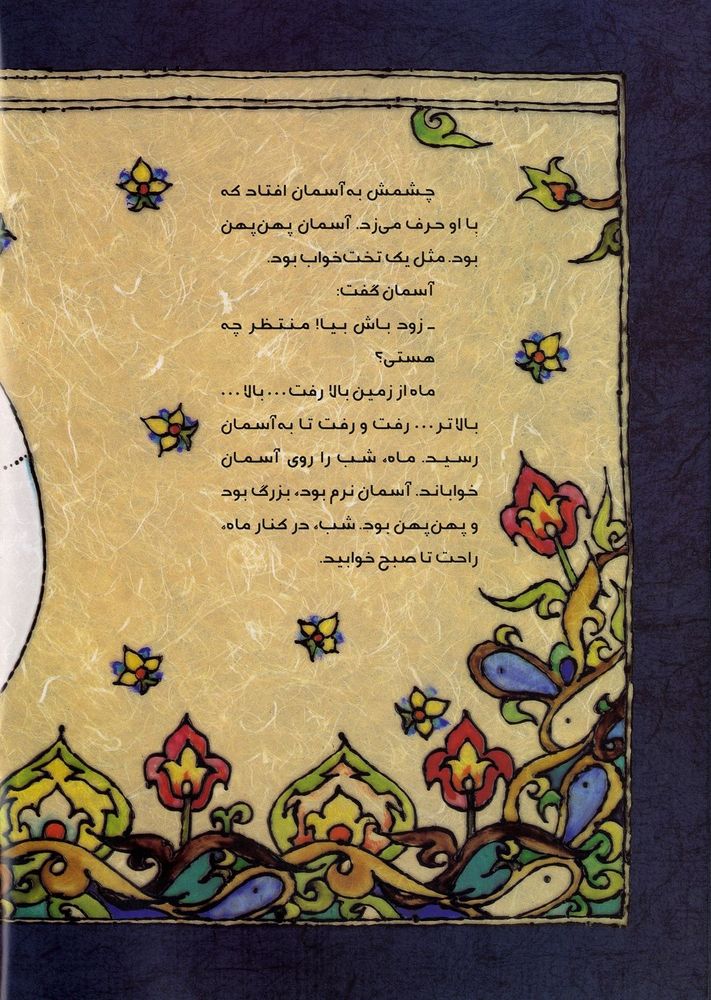 چشمش به آسمان افتاد که
با او حرف می‌زد. آسمان پهن‌پهن
بود. مثل یک تخت‌خواب بود.
آسمان گفت:
ـ زود باش بیا! منتظر چه
هستی؟
ماه از زمین بالا رفت... بالا...
بالاتر... رفت و رفت تا به آسمان
رسید. ماه، شب را روی آسمان
خواباند. آسمان نرم بود، بزرگ بود
و پهن‌پهن بود. شب، در کنار ماه،
راحت تا صبح خوابید.